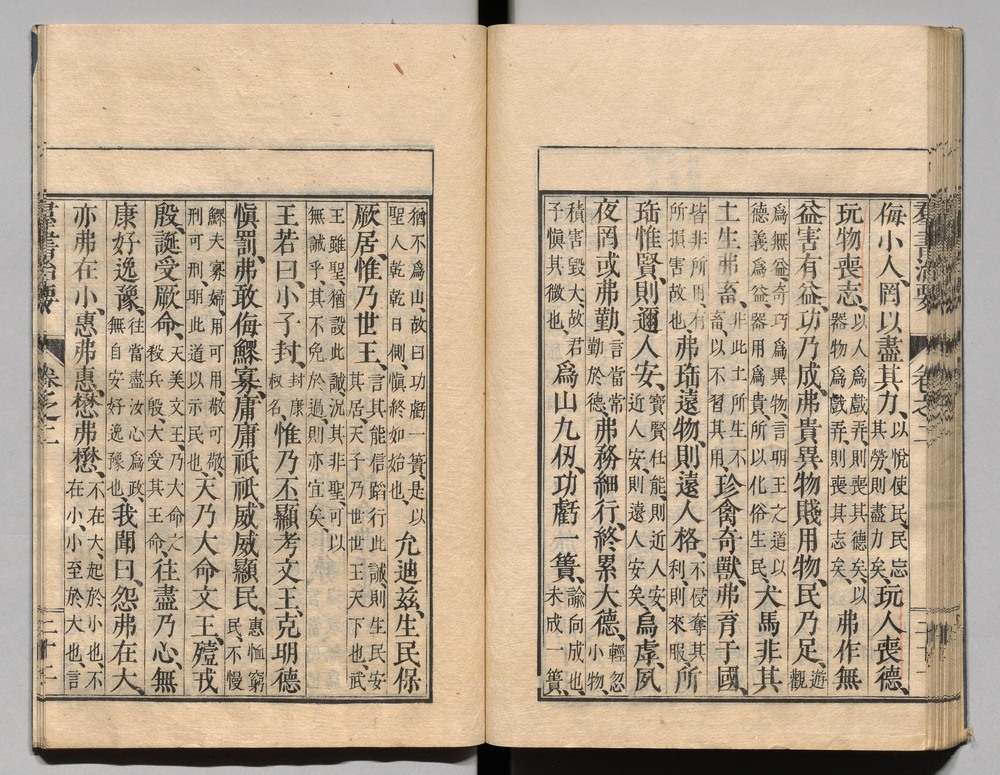 侮小人、罔以盡其力、以悅使民、民忘其勞、則盡力矣、玩人喪德、
玩物喪志、以人爲戲弄、則喪其德矣、以器物爲戲弄、則喪其志矣、弗作無
益害有益、功乃成、弗貴異物賤用物、民乃足、遊觀
爲無益、奇巧爲異物、言明王之道、以德義爲益、器用爲貴、所以化俗生民、犬馬非其
土生弗畜、非此土所生不畜、以不習其用、珍禽奇獸、弗育于國、
皆非所用、有所損害故也、弗珤遠物、則遠人格、不侵奪其利、則來服、所
珤惟賢、則邇人安、寶賢任能、則近人安、近人安、則遠人安矣、烏虖、夙
夜罔或弗勤、言當常勤於德、弗務細行、終累大德、輕忽小物、
積害毀大、故君子愼其微也、爲山九仞、功虧一簣、諭向成也、未成一簣、
猶不爲山、故曰功虧一簣、是以聖人乾乾日側、愼終如始也、允迪茲、生民保
厥居、惟乃世王、言其能信蹈行此誡、則生民安其居、天子乃世世王天下也、武
王雖聖、猶設此誡、況其非聖、可以無誡乎、其不免於過、則亦宜矣、
王若曰、小子封、封康叔名、惟乃丕顯考文王、克明德
愼罰、弗敢侮鰥寡、庸庸祗祗、威威顯民、惠恤窮民、不慢
鰥夫寡婦、用可用、敬可敬、刑可刑、明此道以示民也、天乃大命文王、殪戎
殷、誕受厥命、天美文王、乃大命之殺兵殷、大受其王命、往盡乃心、無
康好逸豫、往當盡汝心爲政、無自安好逸豫也、我聞曰、怨弗在大、
亦弗在小、惠弗惠、懋弗懋、不在大、起於小也、不在小、小至於大也、言
羣書治要
卷之二
二十一